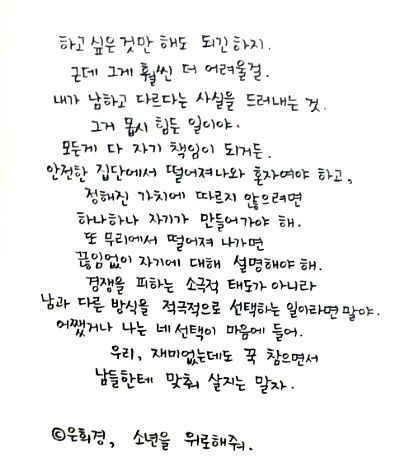 하고 싶은 것만 해도 되긴 하지.
근데 그게 훨씬 더 어려울걸.
내가 남하고 다르다는 사실을 드러내는 것.
그거 몹시 힘든 일이야.
모든게 다 자기 책임이 되거든.
안전한 집단에서 떨어져나와 혼자여야 하고,
정해진 가치에 따르지 않으려면
하나하나 자기가 만들어가야 해.
또 무리에서 떨어져 나가면
끊임없이 자기에 대해 설명해야 해.
경쟁을 피하는 소극적 태도가 아니라
남과 다른 방식을 적극적으로 선택하는 일이라면 말야.
어쨌거나 나는 네 선택이 마음에 들어.
우리, 재미없는데도 꾹 참으면서
남들한테 맞춰 살지는 말자.
©은희경, 소년을 위로해줘.